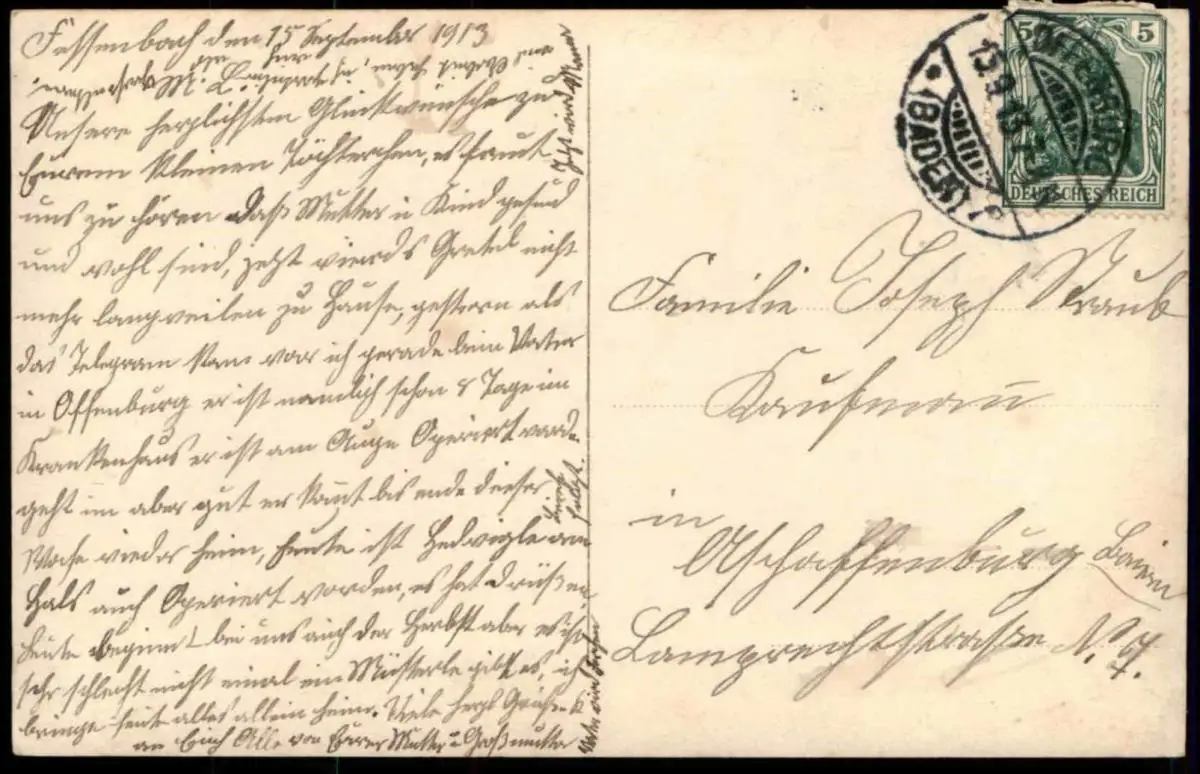 Fessenbach den 15 September 1913
Unsere herzlichsten Glückwünsche zu
Eurem kleinen Töchterchen, es freut
uns zu hören daß Mutter u Kind gesund
und wohl sind, jetzt wirds Gretel nicht
mehr langweilen zu Hause, gestern als
das Telegram kam war ich gerade beim Vater
in Offenburg er ist nämlich schon 8 Tage im
Krankenhaus er ist am Auge Operiert worde.
geht im aber gut er kommt bis ende dieser
Woche wieder heim, heute ist Hedwigle am
Hals auch Operiert worden, es hat Drüßen
heute beginnt bei uns auch der Herbst aber es ist
sehr schlecht nicht einmal ein Müsterle gibt es, ich
bringe heute alles allein heim. Viele herzl Grüße
an Euch Alle von Eurer Mutter u Großmutter
OFFENBURG
15.9.13.7
(BADEN)
5 5
DEUTSCHES REICH
Familie Joseph Straub
Kaufmann
in
Aschaffenburg Baiern
Lamprechtstraße N. 7.